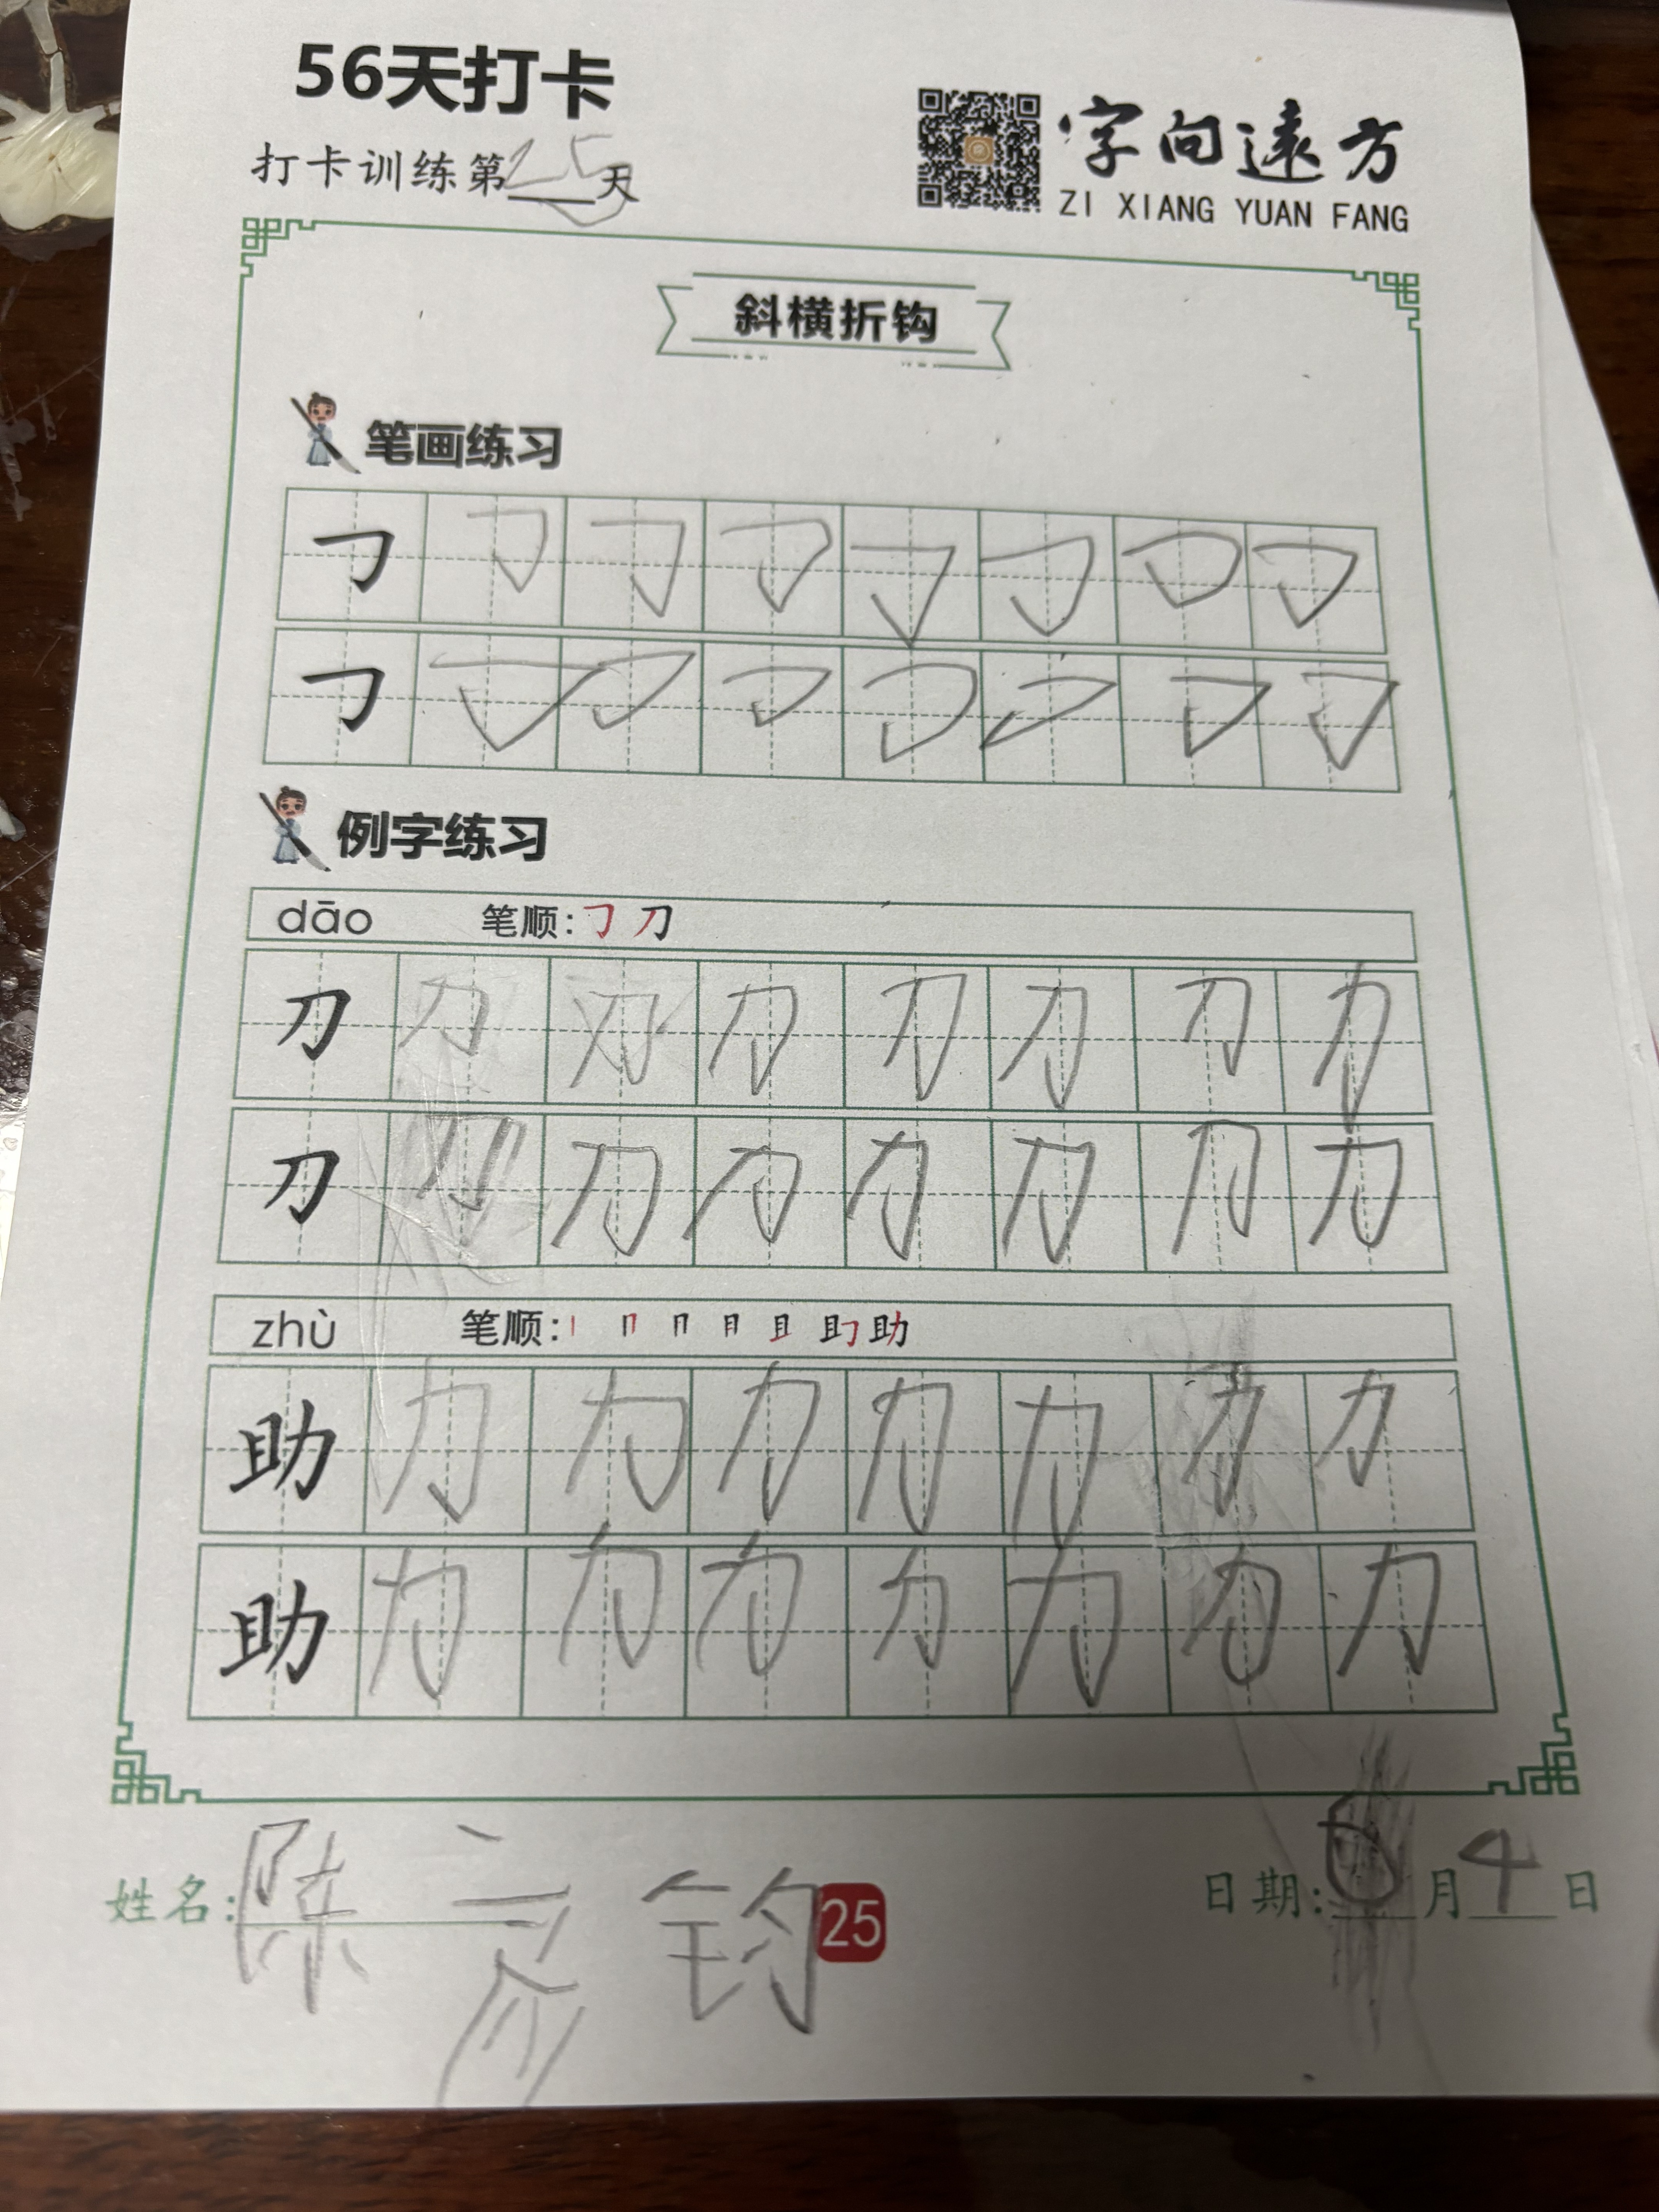 56天打卡
打卡训练第25天
字向遠方
ZI XIANG YUAN FANG
斜横折钩
笔画练习
㇆ ㇆ ㇆ ㇆ ㇆ ㇆ ㇆ ㇆
㇆ ㇆ ㇆ ㇆ ㇆ ㇆ ㇆ ㇆
例字练习
dāo 笔顺: ㇆ 刀
刀 刀 刀 刀 刀 刀 刀 力
刀 刀 刀 力 力 力 刀 力
zhù 笔顺: 丨 冂 冂 月 且 助 助
助 力 力 力 力 力 力 力
助 力 力 力 力 力 力 力
姓名: 陈 钧
25
日期: 月4日